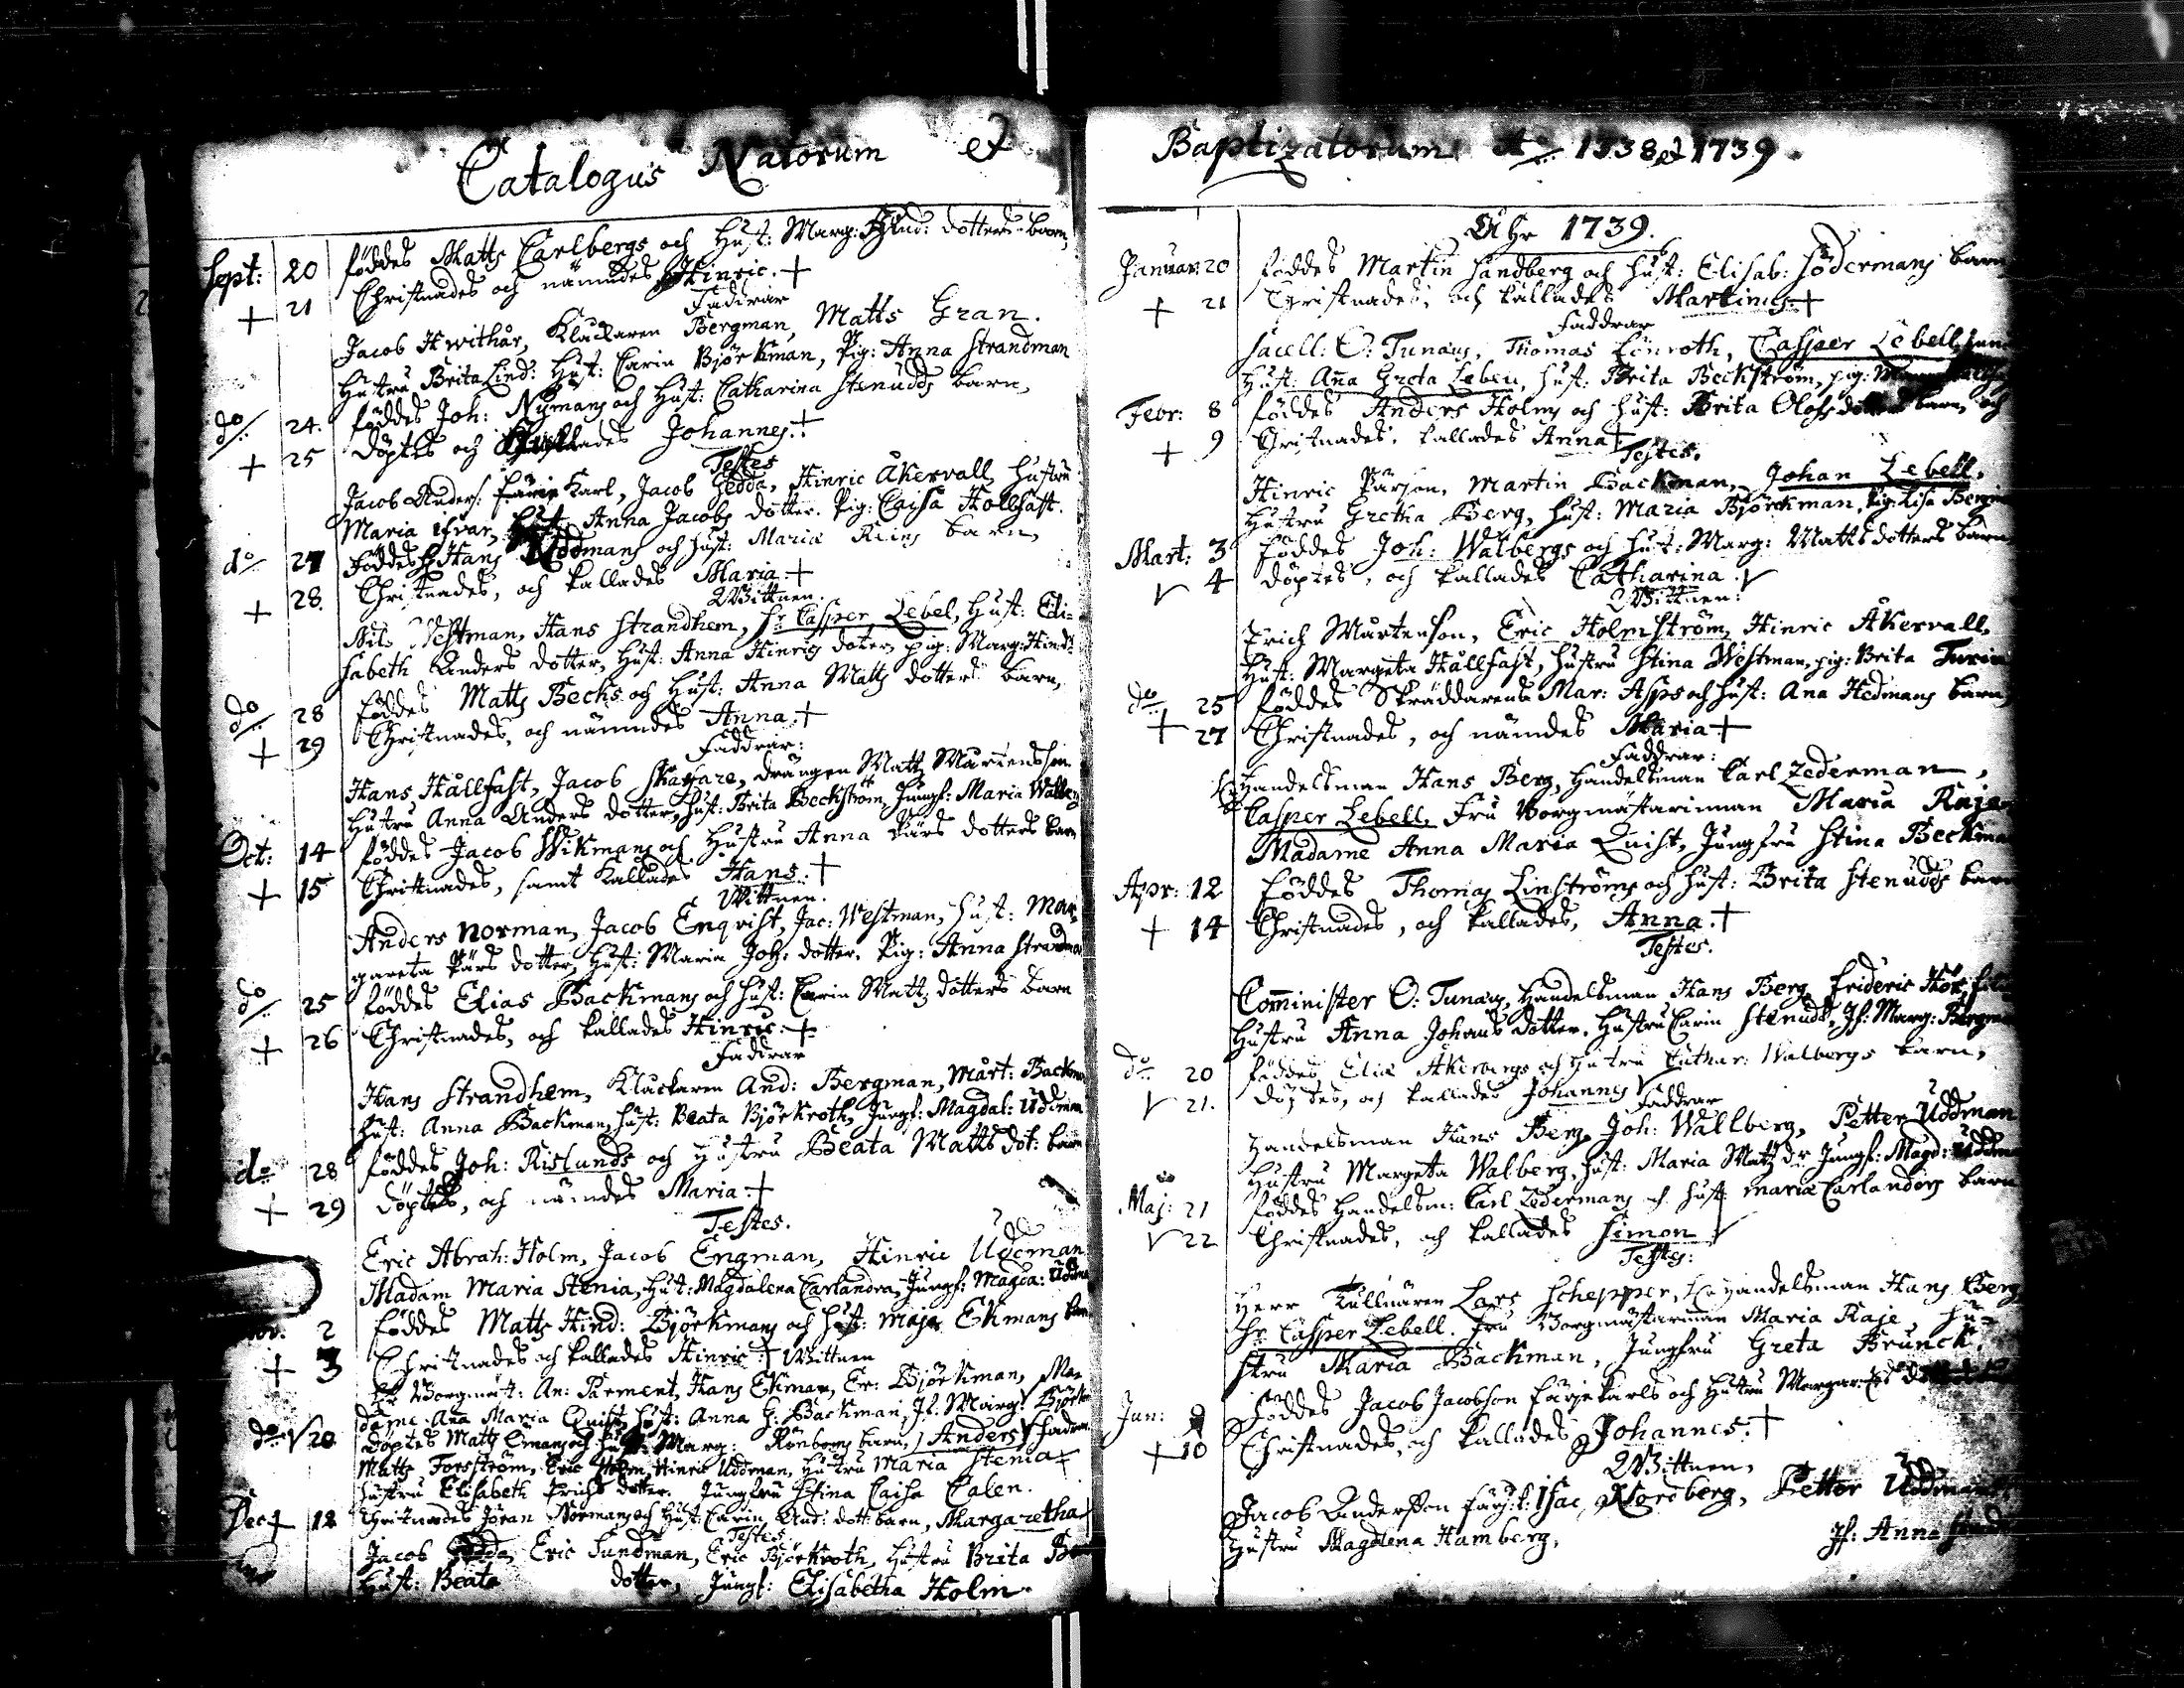 Catalogus Natorum et
Sept: 20 föddes Matts Carlbergs och Hust: Marg: dotters barn,
+ 21 Christnades och nämndes Hinric. +
Faddrar
Jacob Hwithår, Klåckaren Bergman, Matts Gran.
Hustru Brita Lind: Hust: Carin Björkman, Pig: Anna Strandman
do 24. föddes Joh: Nymans och Hust: Catharina Stenudds barn,
+ 25 döptes och kallades Johannes. +
Testes
Jacob Anders: Färie Karl, Jacob Gedda, Hinric Åkervall, Hustru
Maria Ifvar, Hust: Anna Jacobs dotter. Pig: Caisa Hollfast.
do 27 föddes Hans Uddmans och Hust: Maria barn,
+ 28. Christnades, och kallades Maria +
Wittnen.
Nils Westman, Hans Strandhem, Hr Casper Lebel, Hust: Eli-
sabeth Anders dotter, Hust: Anna Hinrics doter, pig: Marg: Hind:
do 28 föddes Matts Becks och Hust: Anna Matts dotters barn,
+ 29 Christnades, och nämndes Anna. +
Faddrar:
Hans Hållfast, Jacob Skaffare, drängen Matts Mårtensson
Hustru Anna Anders dotter, Hust: Brita Beckström, Jungf: Maria Walberg
Oct: 14 föddes Jacob Wikmans och Hustru Anna Pärs dotters barn
+ 15 Christnades, samt Kallades Hans. +
Wittnen.
Anders Norman, Jacob Enqvist, Jac: Westman, Hust: Mar-
gareta Pärs dotter, Hust: Maria Joh: dotter. Pig: Anna Strandman
do 25 föddes Elias Backmans och Hust: Carin Matts dotters barn
+ 26 Christnades, och kallades Hinric. +
Faddrar
Hans Strandhem, Kluckaren And: Bergman, Mårt: Backman
Hust: Anna Backman, Hust: Beata Björkroth, Jungf: Magdal: Uddman
do 28 föddes Joh: Rislunds och Hustru Beata Matts dot: barn
+ 29 döptes, och nämdes Maria. +
Testes.
Eric Abrah: Holm, Jacob Engman, Hinric Uddman
Madam Maria Stenia, Hust: Magdalena Carlandra, Jungf: Magda: Uddman
Nov: 2 föddes Matts Hind: Björkmans och Hust: Maja Ekmans barn
+ 3 Christnades och kallades Hinric + Wittnen
Hr Borgmäst: An: Parment, Hans Ekman, Er: Björkman, Ma-
dame Ana Maria Quist, Hust: Anna G: Backman, Jf: Marg: Björkm
do √ 20 döptes Matts Emans och Hust: Marg: Rönboms barn, Anders √ Fadrar,
Matts Forsström, Eric Holm, Hinric Uddman, Hustru Maria Stenia
Hustru Elisabeth Erichs dotter. Jungfru Stina Caisa Calen.
Dec + 12 Christnades Jöran Normans och Hust: Carin And: dott: barn, Margaretha
Testes.
Jacob Gedda, Eric Sundman, Eric Björkroth, Hustru Brita
Hust: Beata dotter, Jungf: Elisabetha Holm
Baptizatorum Ao 1738 et 1739.
Åhr 1739.
Januar: 20 föddes Martin Sandberg och Hust: Elisab: Södermans barn
+ 21 Christnades, och kallades Martinus +
Faddrar
Sacell: O: Tunæus, Thomas Lönroth, Casper Lebell Jun
Hust: Ana Greta Leben, Hust: Brita Beckström, pig:
Febr: 8 föddes Anders Holms och Hust: Brita Olofs dotters barn, och
+ 9 Christnades. kallades Anna +
Testes.
Hinric Pärson, Martin Backman, Johan Lebell,
Hustru Gretha Berg, Hust: Maria Björckman, Pig: Lisa Bergm
Mart: 3 föddes Joh: Walbergs och Hust: Marg: Matts dotters barn
√ 4 döptes, och kallades Catharina. √
Wittnen:
Erich Mårtenson, Eric Holmström, Hinric Åkervall,
Hust: Margeta Hållfast, Hustru Stina Westman, pig: Brita
do 25 föddes Skräddarens Mar: Asps och Hust: Ana Hedmans barn,
+ 27 Christnades, och nämdes Maria +
Faddrar:
Handelsman Hans Berg, Handelsman Carl Zederman,
Casper Lebell, Fru Borgmästarinnan Maria Raje
Madame Anna Maria Quist, Jungfru Stina Beckman
Apr: 12 föddes Thomas Linströms och Hust: Brita Stenudds barn
+ 14 Christnades, och kallades, Anna. +
Testes.
Cominister O: Tunæus, Handelsman Hans Berg, Frideric
Hustru Anna Johans dotter, Hustru Carin Stenudd, Jf: Marg: Bergman
do 20 föddes Eliæ Åkerbergs och Hustru Cathar: Walbergs barn,
√ 21. döptes, och kallades Johannes √
Faddrar
Handelsman Hans Berg, Joh: Wallberg, Petter Uddman
Hustru Margeta Walberg, Hust: Maria Matts dr Jungf: Magd: Uddman
Maj: 21 föddes Handelsm: Carl Zedermans och Hust Maria Carlanders barn
√ 22 Christnades, och kallades Simon √
Testes:
Herr Tullnären Lars Schepper, Handelsman Hans Berg
Hr Casper Lebell. Fru Borgmästarinnan Maria Raje, Hu-
stru Maria Backman, Jungfru Greta Brunck.
Jun: 9 föddes Jacob Jacobson Färjekarls och Hustru Margar:
+ 10 Christnades, och kallades Johannes. +
Wittnen,
Jacob Andersson Färj: k: Isac Noreberg, Petter Uddman
Hustru Magdlena Hamberg, Jf: Anna